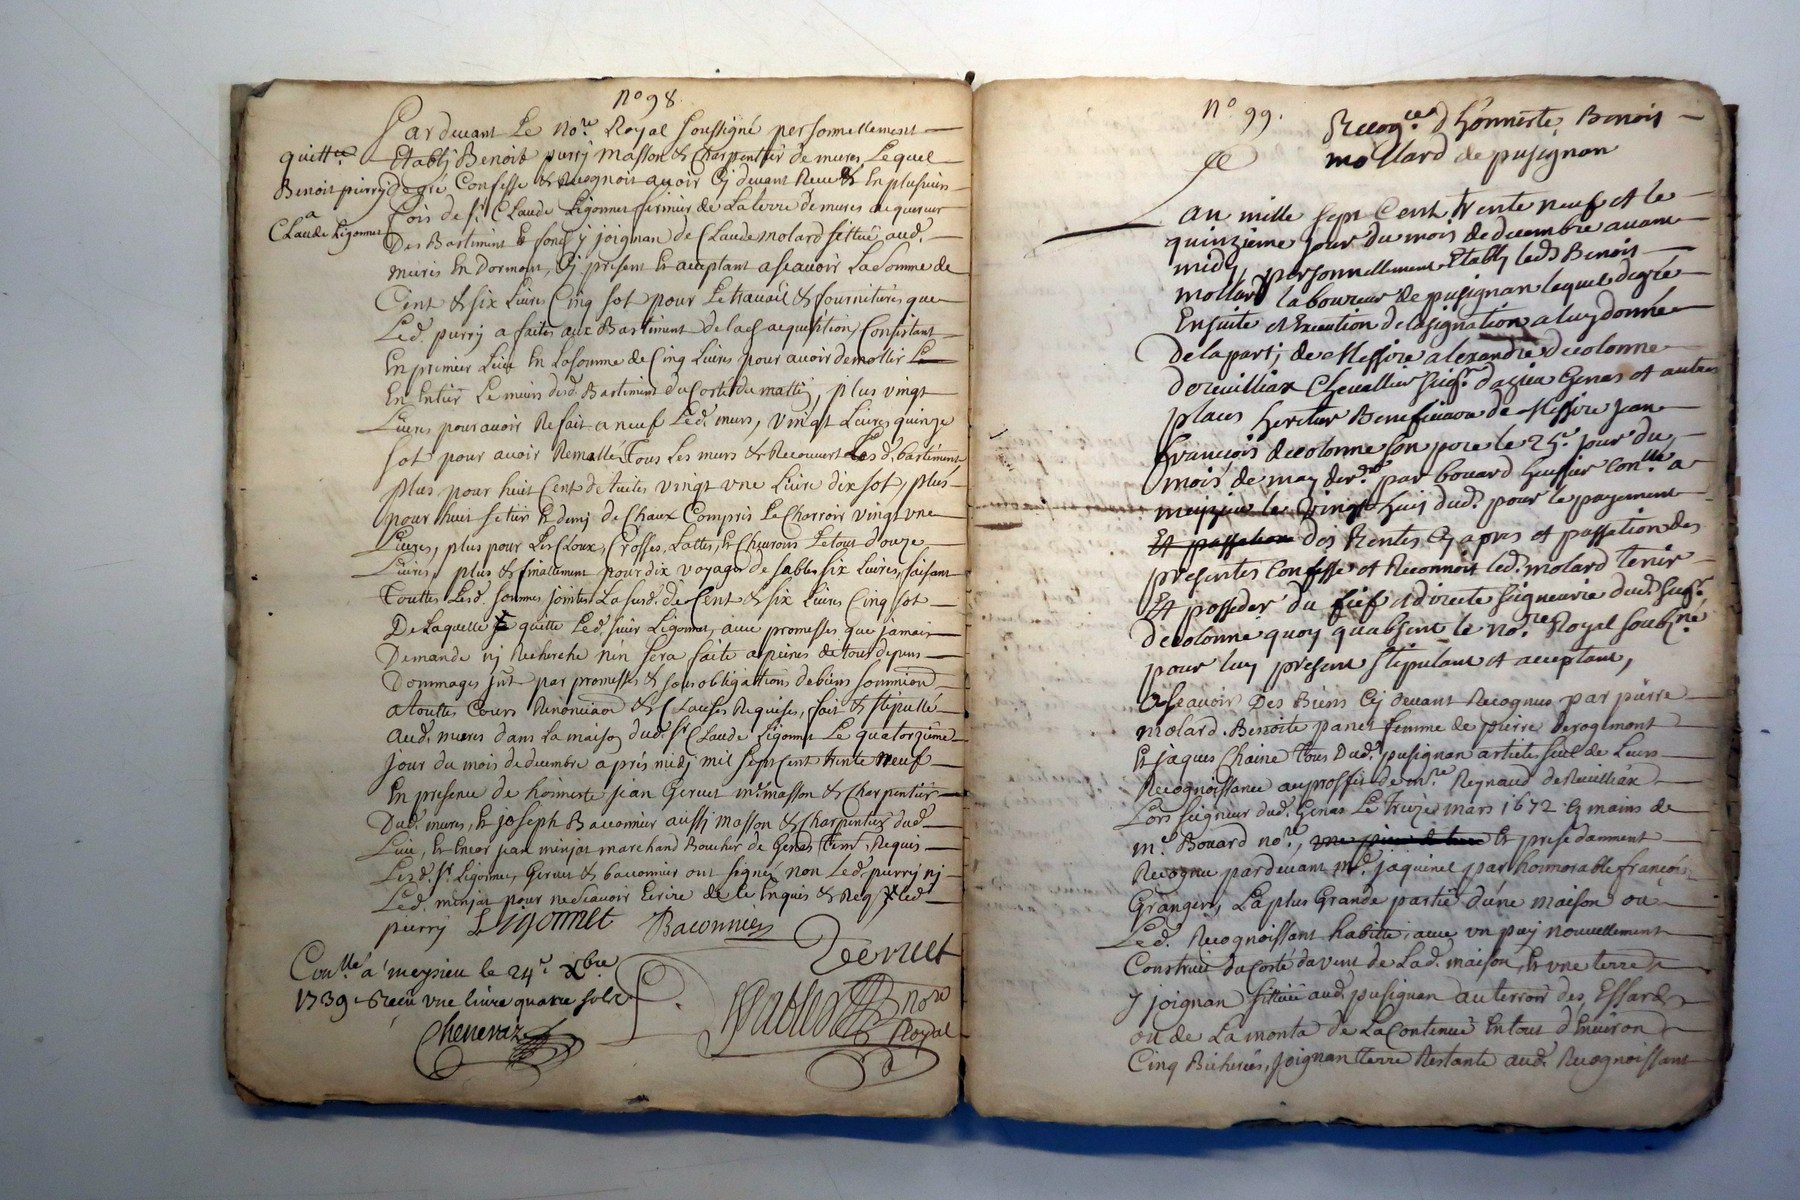 N° 98
Pardevant Le No.re Royal soussigné personnellement
quitt.ce
Etably Benoit purry masson & charpentier de mures, Lequel
Benoit purry
degré Confesse & Recognoit avoir Cy devant Receu & En plusieurs
a
fois de s.r Claude Ligonnet fermier de La terre de mures acquereur
Claude Ligonnet
Des Bastiment & fond y joignan de Claude molard sittué aud.
mures En Dormont, Cy present & acceptant a scavoir La somme de
Cent & six Livres Cinq sol pour Le travail & fournitures que
Led. purry a faites aux Bastiment de lad. acquisition, Consistant
En primier Lieu En La somme de Cinq Livres pour avoir demollir
En Entier Le meurs dud. Bastiment du Costé du mattin, plus vingt
Livres pour avoir Refait a neuf Led. murs, vingt Livres quinze
sol pour avoir Remallé Tous Les murs & Recouvert Les d. bastiment
plus pour huit Cent de tuiles vingt une Livre dix sol, plus
pour huit setier & demy de Chaux Compris Le Charroir vingt une
Livres, plus pour Les Cloux, Crosses, Lattes, & Chevrons Le tout douze
Livres, plus & finallement pour dix voyages de sables six Livres, faisant
touttes Lesd. sommes jointes La susd. de Cent & six Livres Cinq sol
De Laquelle quitte Led. sieur Ligonnet, avec promesses que jamais
Demande ny Recherche n'en sera faite a peines de tous depens
Dommages jnt par promesses & sous obligations de biens soumiōn
a touttes Cours Renonciaōn & Clauses Requises, fait & stipullé
aud. mures dans La maison dud. s.r Claude Ligonnet Le quatorzieme
jour du mois de decembre aprés midy mil sept Cent trente neuf
En presence de honneste jean Gervet m.e masson & Charpentier
Dud. mures, & joseph Baconnier aussy masson & Charpentier dud.
Lieu, & Encor jean minjat marchand Boucher de Genas tem. Requis
Led. s.r Ligonnet, Gervet & baconnier ont signés non Led. purry ny
Led. minjat pour ne scavoir Ecrire de ce Enquis & Req Led
purry Ligonnet Baconnier
Gervet
Con.llé a meysieu le 24.e Xbre
1739 Receu une livre quatre sols
no.re
Chenevaz
Royal
N° 99.
Recog.ce d'honneste Benoit
mollard de pusignan
Lan mille sept Cent trente neuf et le
quinzieme jour du mois de decembre avant
midy personnellement Etably led. Benoit
mollard laboureur de pusignan lequel degré
Ensuite et Execution de lassignation a luy donnée
De la part, de Messire alexandre decolonne
doreuilliax Chevallier seig.r dazieu Genas et autres
places heritier Beneficiaire de Messire jean
françois decolonne son pere le 25.e jour du
mois de may der.r par bouard huissier con.llé a
meyzieu le vingt huit dud. pour le payement
Et passation des Rentes Cy apres et passation des
presentes Confesse et Reconnoit led. molard tenir
Et posseder du fief et directe seigneurie dud. seig.r
decolonne quoy qu'absent le no.re Royal soubz.né
pour luy present stipulant et acceptant,
Ascavoir Des Biens Cy devant Recognus par pierre
molard, Benoite panet femme de pierre derogimont
& jaques Chaine tous Dud. pusignan article seul de Leurs
Recognoissance au proffit de m.re Reynaud de Reuilliax
Lors seigneur dud. Genas Le treize mars 1672 Es mains de
m.e Bouard no.re, une piece de terre & presedamment
Recognu pardevant M.e jaquinet par honnorable françois
Grangier, La plus Grande partie d'une maison où
Led. Recognoissant habitte, avec un puy nouvellement
Construit du Costé du vent de Lad. maison, & une terre
y joignan sittuée aud. pusignan au terroir des Essard
ou de La monta de La Continue En tout d'Environ
Cinq Bicherées, joignan terre Restante aud. Recognoissant